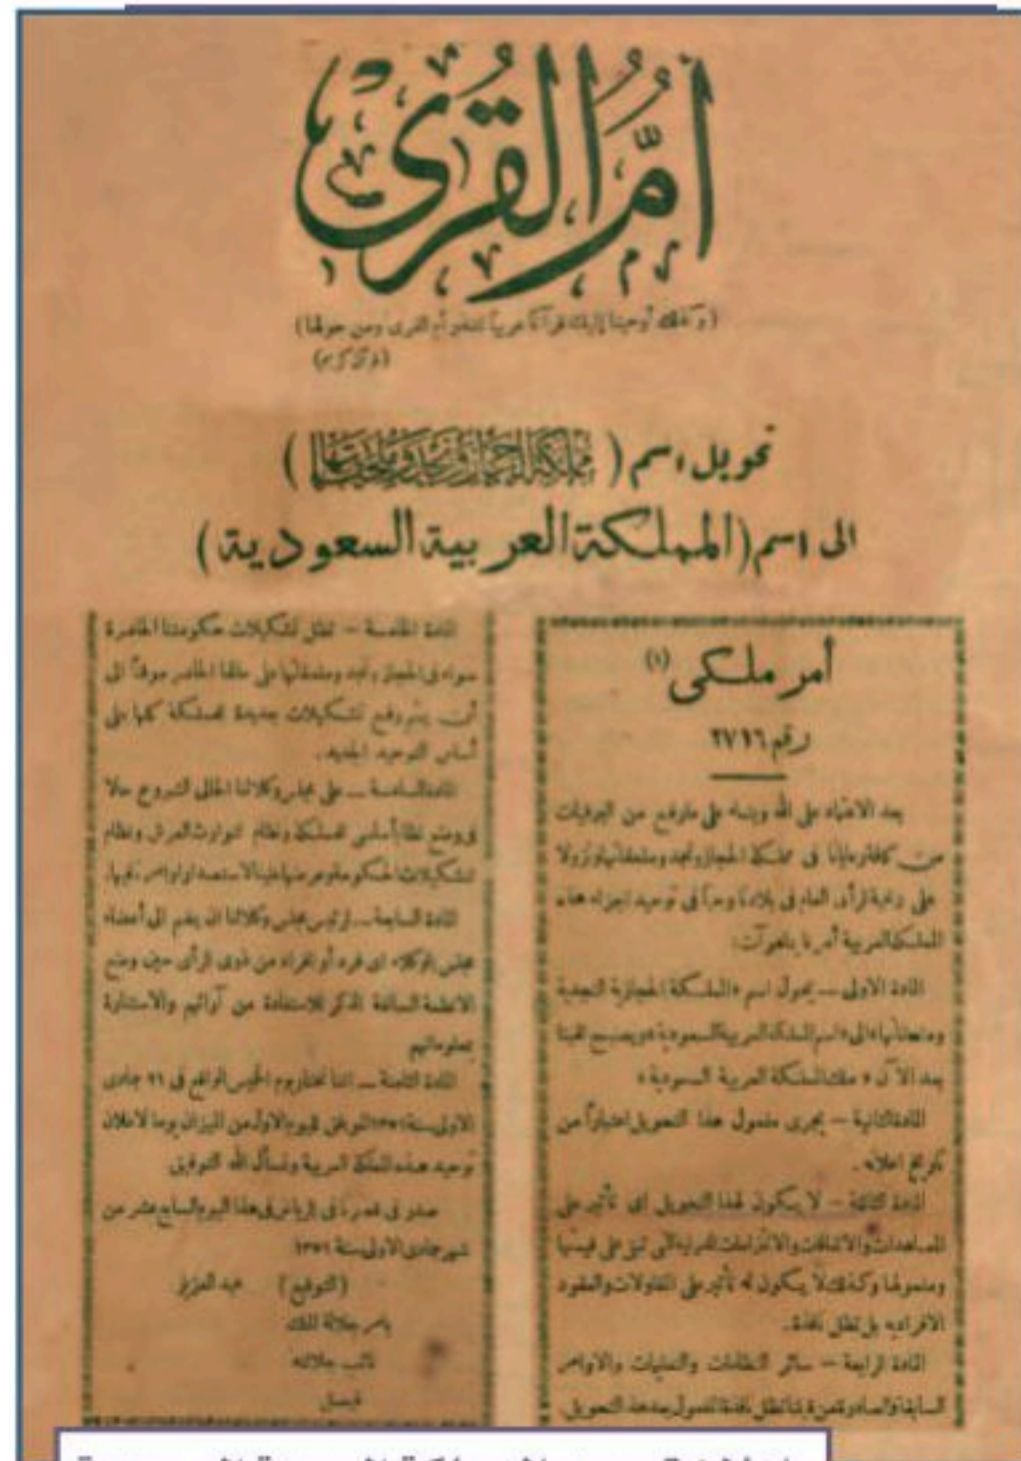 أم القرى
(وكذلك أوحينا إليك قرآنا عربياً لتنذر أم القرى ومن حولها)
(قرآن كريم)
تحويل اسم (مملكة الحجاز ونجد وملحقاتها)
الى اسم (المملكة العربية السعودية)
أمر ملكى (١)
رقم ٢٧١٦
بعد الاعتماد على الله وبناء على مارفع من البرقيات
من كافة رعايانا فى مملكة الحجاز ونجد وملحقاتها ونزولا
على رغبة الرأى العام فى بلادنا وحباً فى توحيد اجزاء هذه
المملكة العربية أمرنا بما هو آت:
المادة الاولى – يحول اسم «المملكة الحجازية النجدية
وملحقاتها» الى «اسم المملكة العربية السعودية» ويصبح لقبنا
بعد الآن «ملك المملكة العربية السعودية»
المادة الثانية – يجرى مفعول هذا التحويل اعتباراً من
تاريخ اعلانه.
المادة الثالثة – لا يكون لهذا التحويل اى تأثير على
المعاهدات والاتفاقات والالتزامات الدولية التى تبقى على قيمتها
ومفعولها وكذلك لا يكون له تأثير على المقاولات والعقود
الافرادية بل تظل نافذة.
المادة الرابعة – سائر النظامات والتعليمات والاوامر
السابقة والصادرة من قبلنا تظل نافذة المفعول بعد هذا التحويل.
المادة الخامسة – تظل تشكيلات حكومتنا الحاضرة
سواء فى الحجاز ونجد وملحقاتها على حالها الحاضر موقتاً الى
أن يتم وضع تشكيلات جديدة للمملكة كلها على
أساس التوحيد الجديد.
المادة السادسة – على مجلس وكلائنا الحالى الشروع حالا
فى وضع نظام أساسى للمملكة ونظام لتوارث العرش ونظام
لتشكيلات الحكومة وعرضها علينا لاستصدار اوامرنا فيها.
المادة السابعة – لرئيس مجلس وكلائنا ان يضم الى أعضاء
مجلس الوكلاء اى فرد أو افراد من ذوى الرأى حين وضع
الانظمة السالفة الذكر للاستفادة من آرائهم والاستنارة
بمعلوماتهم
المادة الثامنة – اننا نختار يوم الخميس الواقع فى ٢١ جمادى
الاولى سنة ١٣٥١ الموافق لليوم الاول من الميزان يوما لاعلان
توحيد هذه المملكة العربية ونسأل الله التوفيق
صدر فى قصرنا فى الرياض فى هذا اليوم السابع عشر من
شهر جمادى الاولى سنة ١٣٥١
(التوقيع) عبد العزيز
بأمر جلالة الملك
نائب جلالته
فيصل